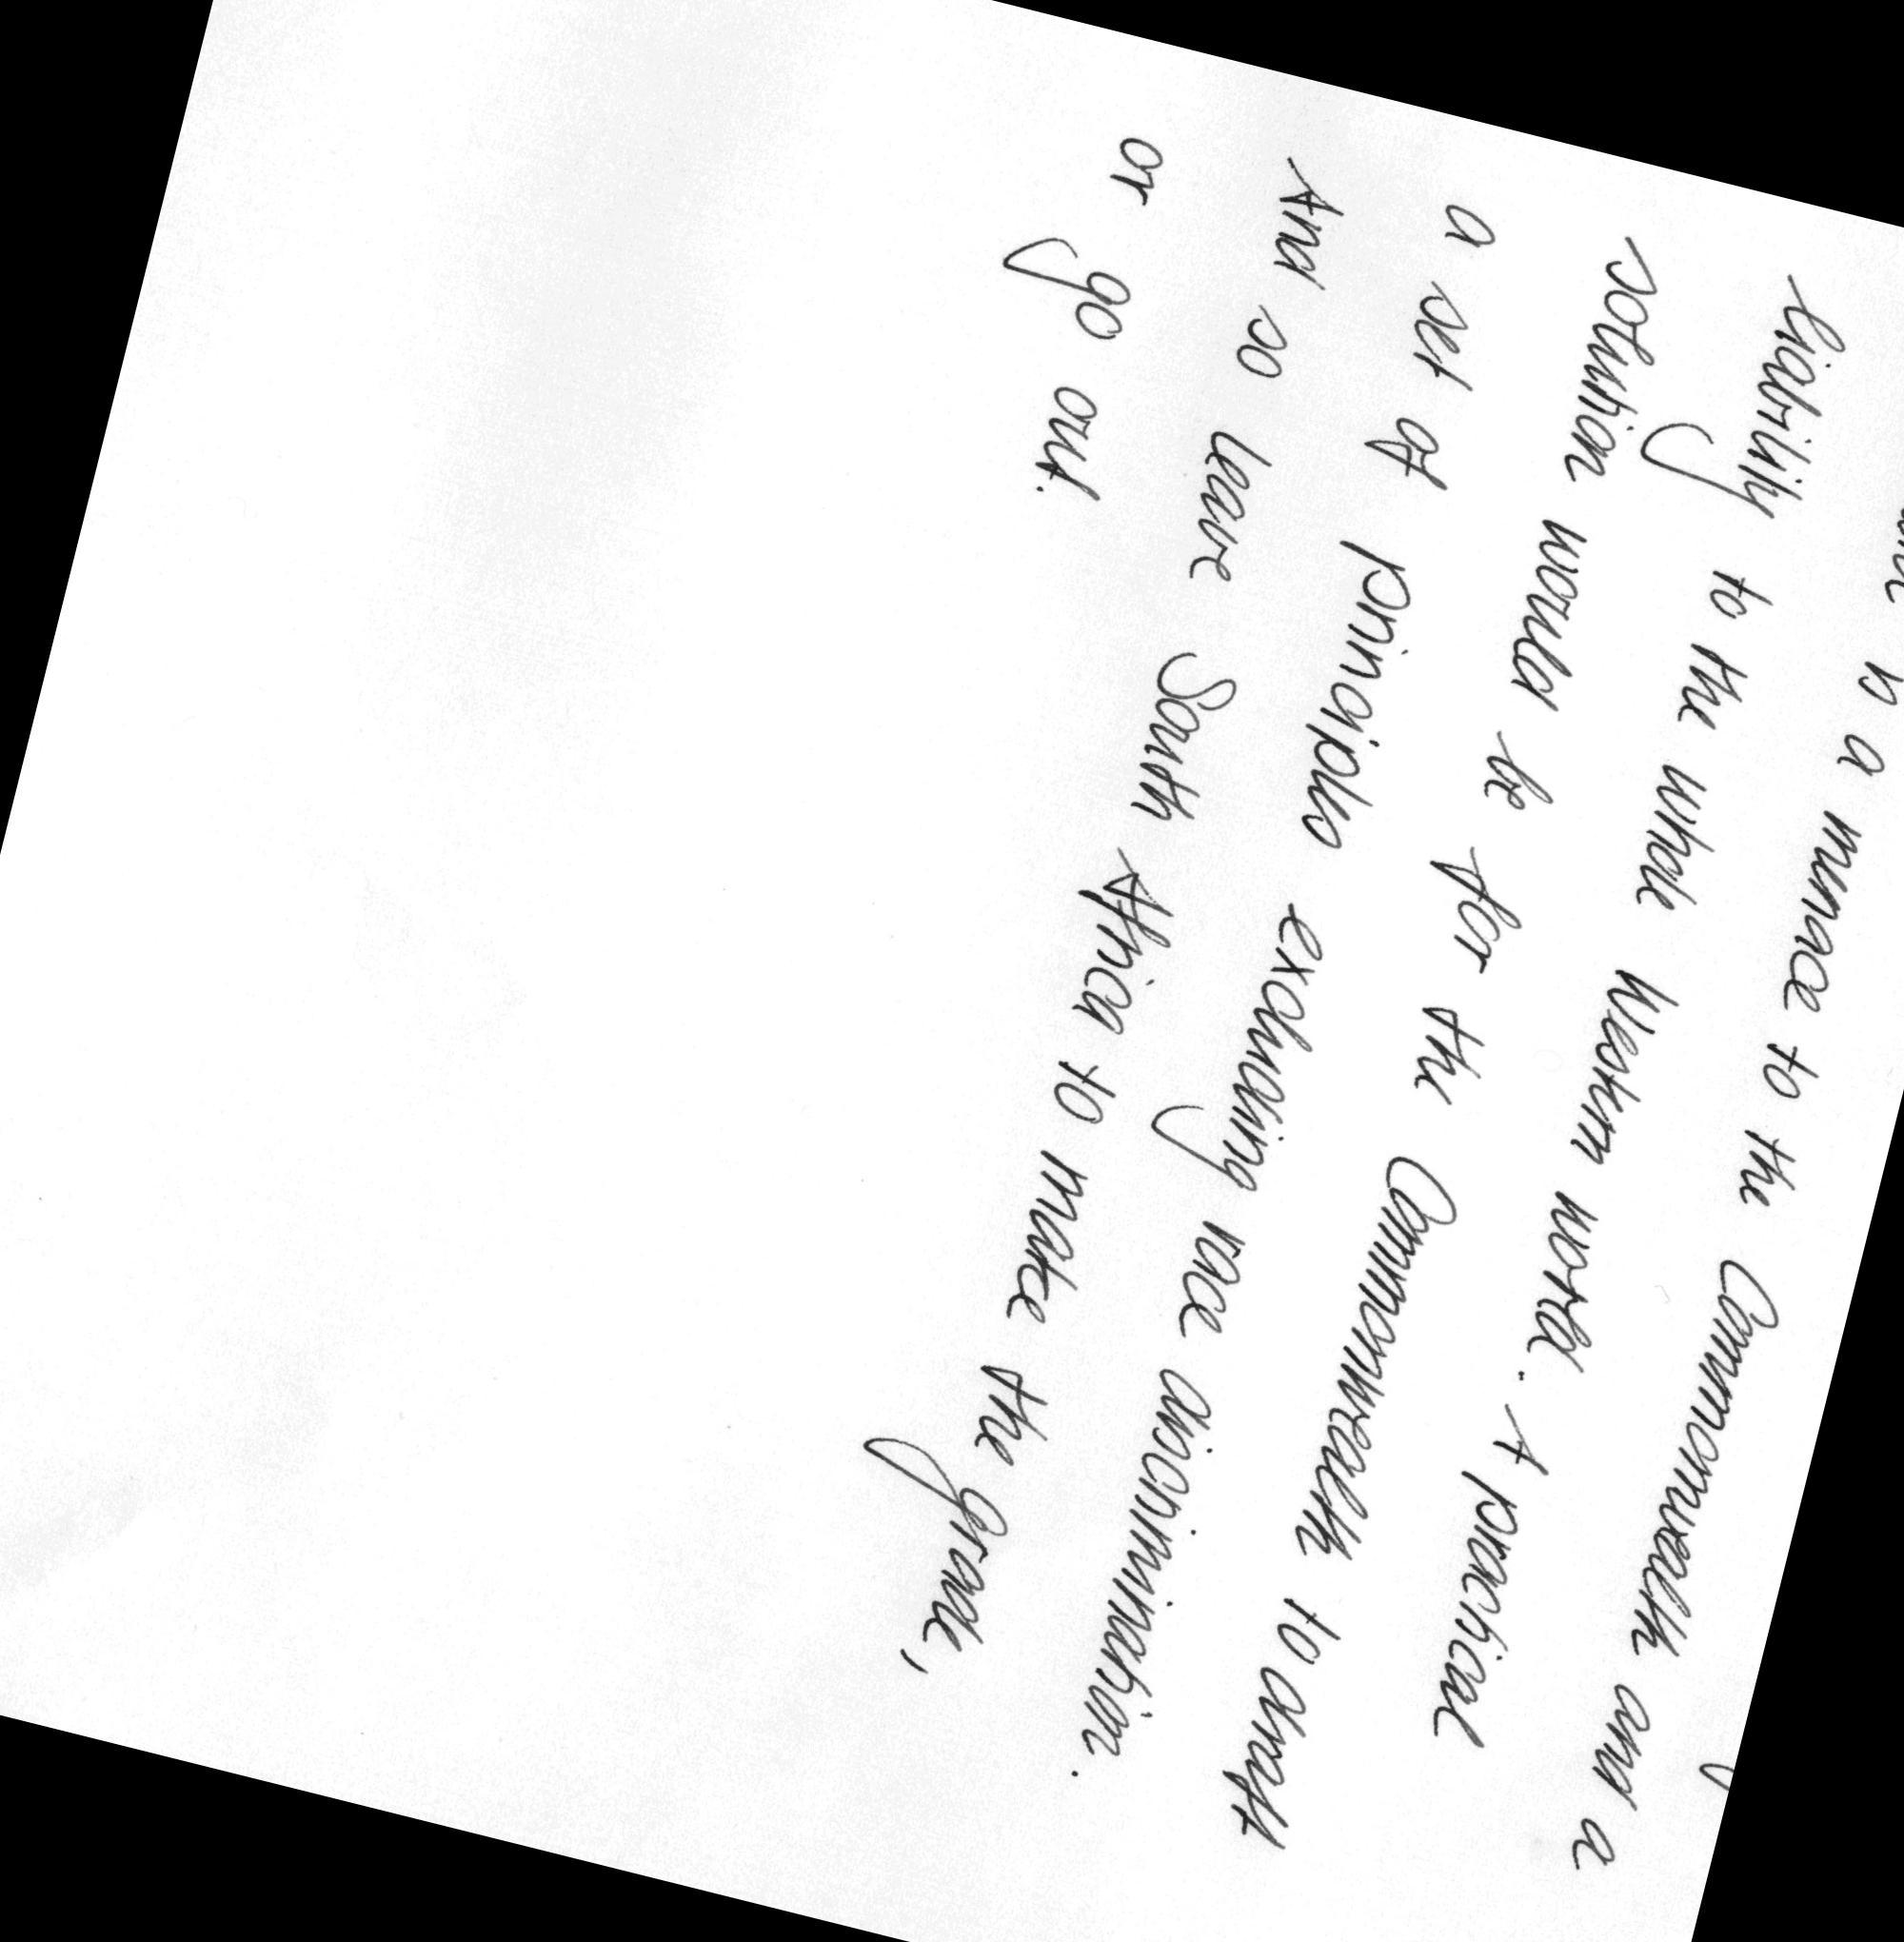 is a menace to the Commonwealth and a
liability to the whole Western world. A practical
solution would be for the Commonwealth to draft
a set of principles excluding race discrimination.
And so leave South Africa to make the grade,
or go out.